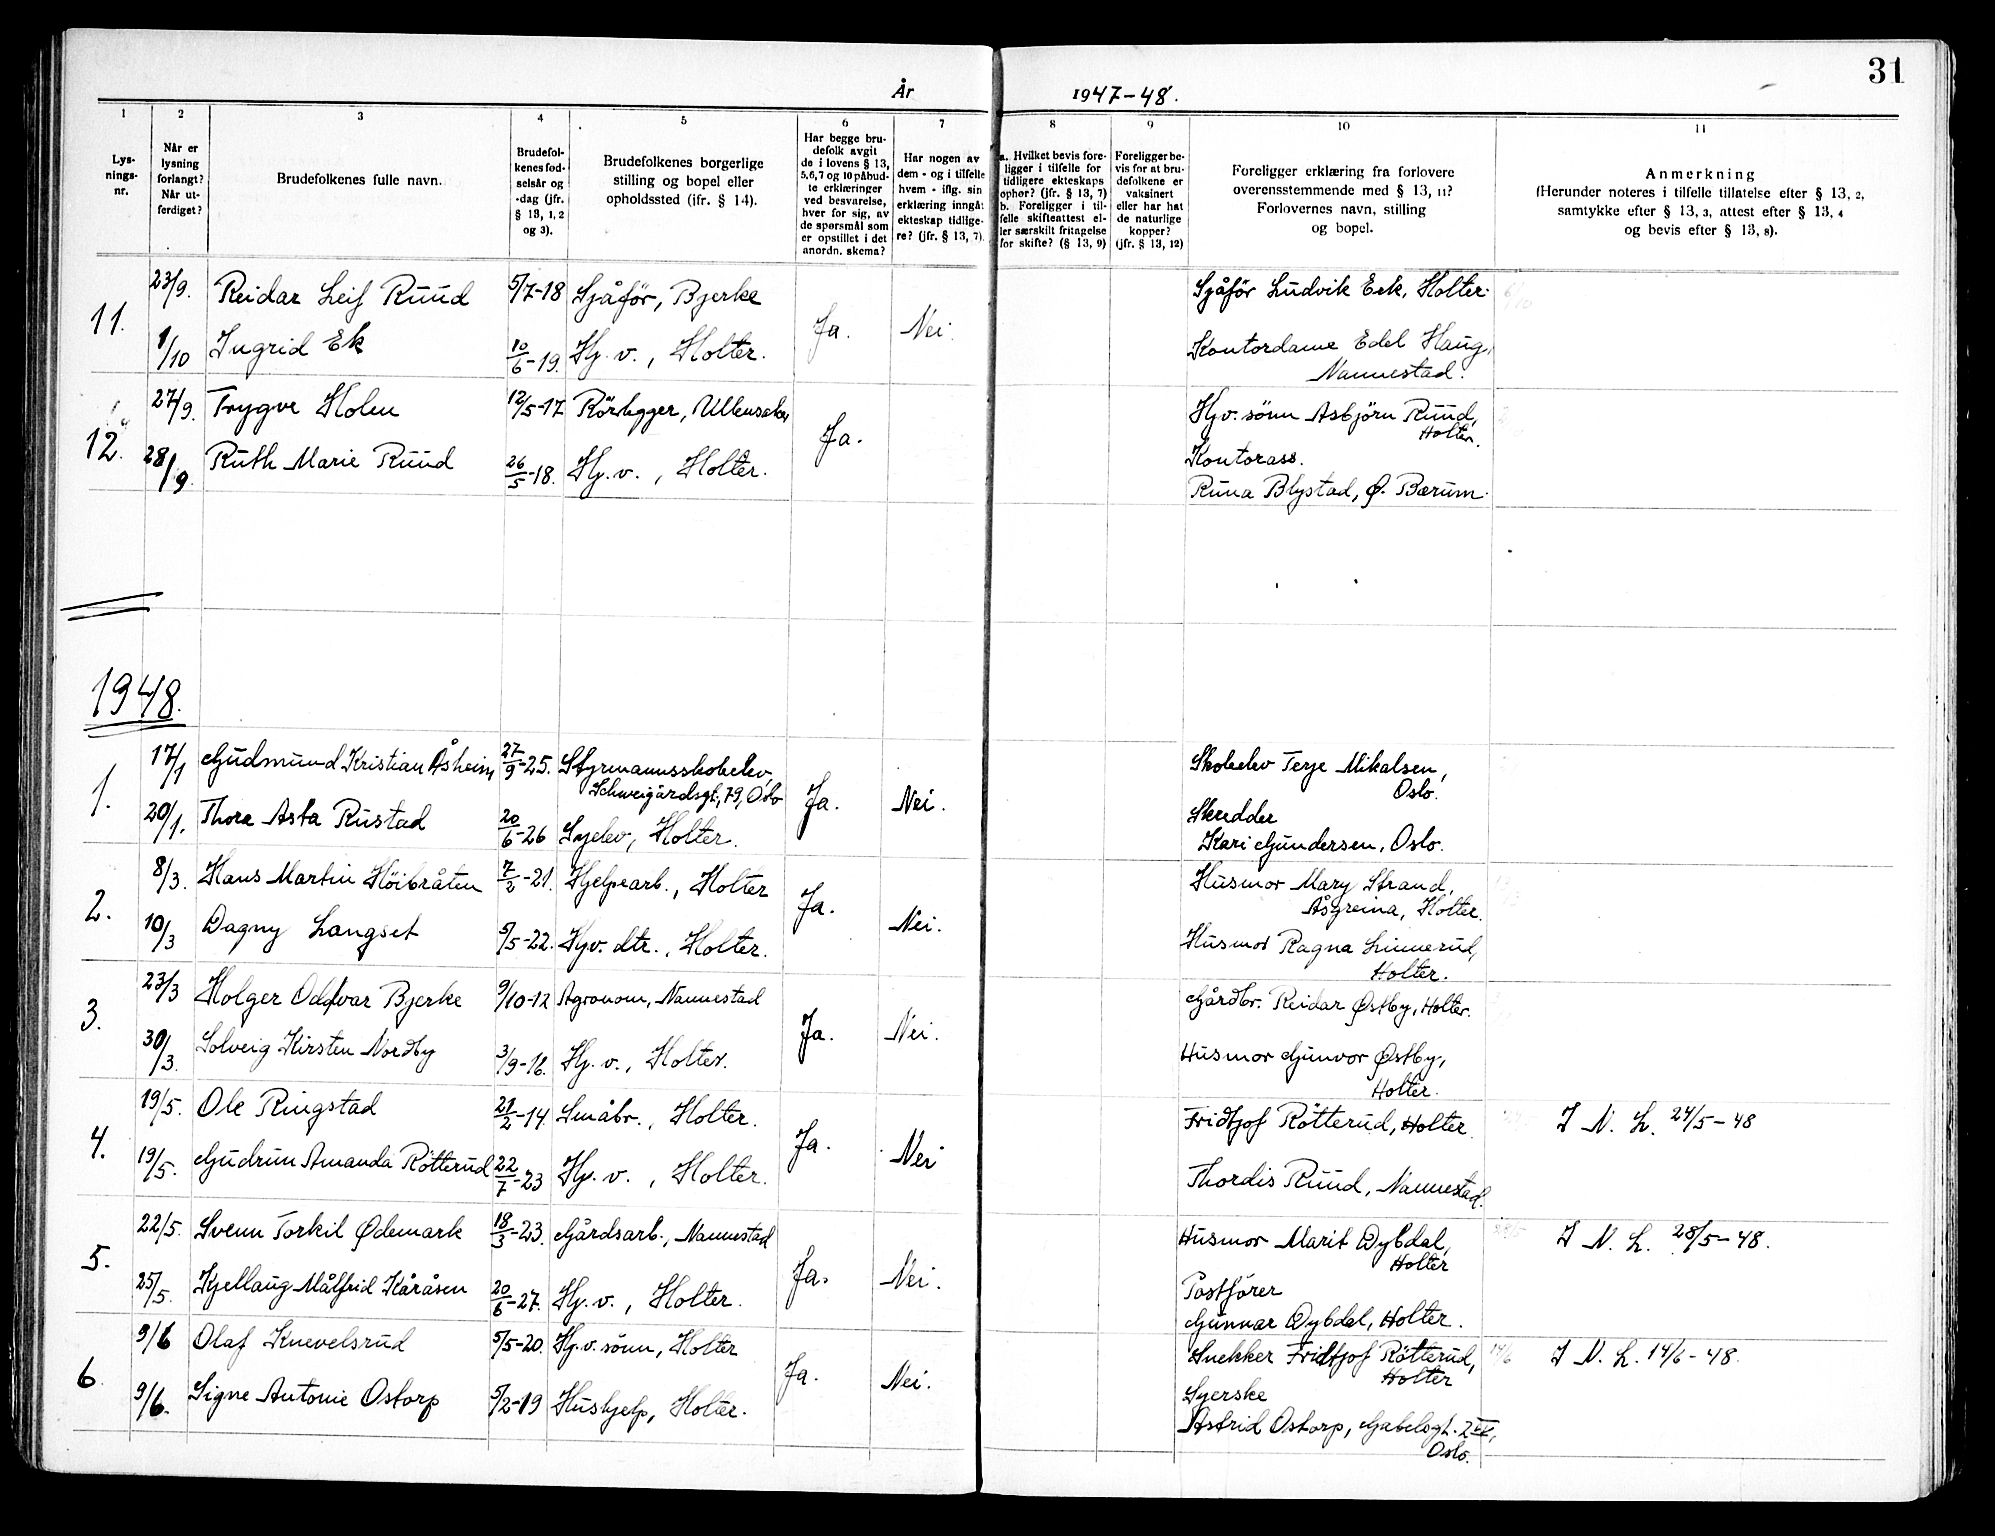 31
År 1947-48.
1 2 3 4 5 6 7 8 9 10 11
Lys-
nings-
nr.
Når er
lysning
forlangt?
Når ut-
ferdiget?
Brudefolkenes fulle navn.
Brudefol-
kenes fød-
selsår og
-dag (jfr.
§ 13, 1, 2
og 3).
Brudefolkenes borgerlige
stilling og bopel eller
opholdssted (jfr. § 14).
Har begge bru-
defolk avgit
de i lovens § 13,
5,6,7 og 10 påbud-
te erklæringer
ved besvarelse,
hver for sig, av
de spørsmål som
er opstillet i det
anordn. skema?
Har nogen av
dem - og i tilfelle
hvem - iflg. sin
erklæring inngåt
ekteskap tidlige-
re? (jfr. § 13, 7).
a. Hvilket bevis fore-
ligger i tilfelle for
tidligere ekteskaps
ophør? (jfr. § 13, 7)
b. Foreligger i til-
felle skifteattest el-
ler særskilt fritagelse
for skifte? (§ 13, 9)
Foreligger be-
vis for at bru-
defolkene er
vaksinert
eller har hat
de naturlige
kopper?
(jfr. § 13, 12)
Foreligger erklæring fra forlovere
overensstemmende med § 13, 11?
Forlovernes navn, stilling
og bopel.
Anmerkning
(Herunder noteres i tilfelle tillatelse efter § 13, 2,
samtykke efter § 13, 3, attest efter § 13, 4
og bevis efter § 13, 8).
11. 23/9. Reidar Leif Ruud 5/7-18 Sjåför, Bjerke Ja. Nei. Sjåför Ludvik Eek, Holter.
1/10 Ingrid Ek 10/6-19. Hj. v., Holter. Kontordame Edel Haug,
Nannestad.
12. 27/9. Trygve Holen 12/5-17 Rörlegger, Ullensaker Ja. Hjv. sönn Asbjörn Ruud,
Holter.
28/9. Ruth Marie Ruud 26/5-18. Hj. v., Holter. Kontorass.
Runa Blystad, Ø. Bærum.
1948.
1. 17/1 Gudmund Kristian Åsheim 27/9-25. Styrmannsskoleelev,
Schweigårdsgt., 79, Oslo Ja. Nei. Skoleelev Terje Mikalsen,
Oslo.
20/1. Thora Asta Rustad 20/6-26 Syelev, Holter. Skredder
Kari Gundersen, Oslo.
2. 8/3. Hans Martin Höibråten 7/2-21. Hjelpearb., Holter Ja. Nei. Husmor Mary Strand,
Åsgreina, Holter.
10/3 Dagny Langset 5/5-22. Hjv. dtr., Holter. Husmor Ragna Linnerud,
Holter.
3. 23/3 Holger Oddvar Bjerke 9/10-12 Agronom, Nannestad Ja. Nei. Gårdbr. Reidar Østby, Holter.
30/3. Solveig Kirsten Nordby 3/9-16. Hj. v., Holter. Husmor Gunvor Østby,
Holter.
4. 19/5. Ole Ringstad 21/2-14. Småbr., Holter. Ja. Nei Fridtjof Rötterud, Holter. I N. L. 24/5-48
19/5. Gudrun Amanda Rötterud 22/7-23 Hj. v., Holter. Thordis Ruud, Nannestad.
5. 22/5. Svenn Torkil Ødemark 18/3-23. Gårdsarb., Nannestad Ja. Nei. Husmor Marit Dybdal,
Holter I N. L. 28/5-48.
25/5. Kjellaug Målfrid Kåråsen 20/6-27. Hj. v., Holter. Postförer
Gunnar Dybdal, Holter.
6. 9/6 Olaf Knevelsrud 5/5-20. Hj. v. sönn, Holter Ja. Nei. Snekker Fridtjof Rötterud,
Holter 14/6 I N. L. 14/6-48.
9/6. Signe Antonie Ostorp 5/2-19 Hushjelp, Holter. Syerske
Astrid Ostorp, Gabelsgt. 2 IV,
Oslo.